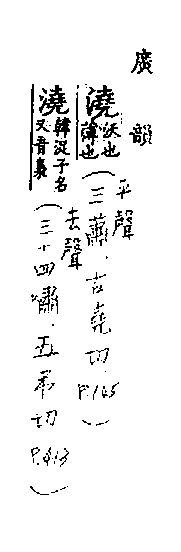 廣韻
澆 沃也薄也 (三蕭.古堯切 P.145) 平聲
澆 韓浞子名又音梟 (三十四嘯.五弔切 P.413) 去聲